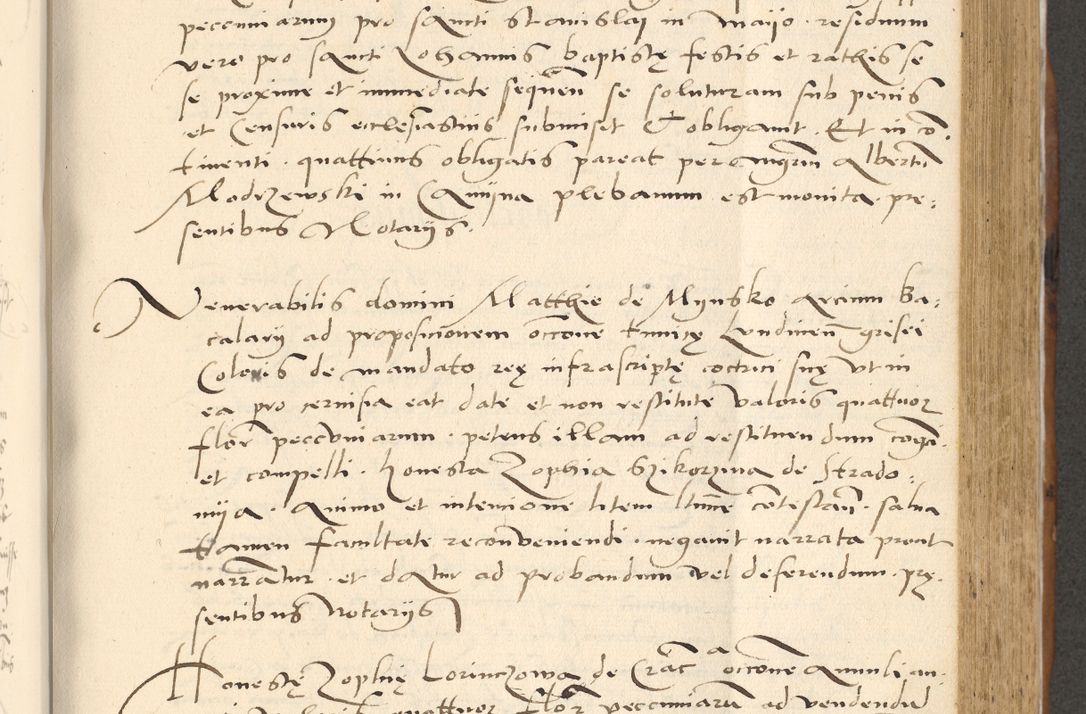 peccuniarum pro sancti Stanislai in Maijo residuum
vero pro sancti Johannis baptistę festis et rathis se
se proxime et immediate sequen̄ se soluturam sub penis
et Censuris ecclesiasticis submisit et obligauit. Et in cō
tinenti quattinus obligatis pareat per mgrm Albertū
Modrzewski in Camijna plebanum est monita pre:
sentibus Notarijs.
Venerabilis domini Matthie de Mijnsko arcium ba:
calarij ad propositionem occōne tunicę Lundinen̄ grisei
Coloris de mandato reę infrascriptę coctrici suę vt in
ea pro ceruisia eat date et non restitute valoris quattuor
flor̄ peccuniarum petens illam ad restituendum cogi
et compelli. honesta Zophia Szikorzyna de Strado:
mija animo et intencione litem cōtestan̄ salua
tamen facultate reconveniendi negauit narrata prout
narrātur et datur ad probandum vel deferendum prę
sentibus Notarijs
Honestę Zophię Lorinczowa de Crāc a occōne Annuli au:
quattuor flor̄ peccuniarū ad vendendū